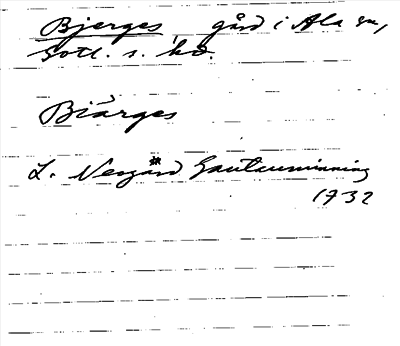 Bjerges, gård i Ala sn,
Gotl. s. hd.
Biärges
L. Nergård Gautauminning
1732